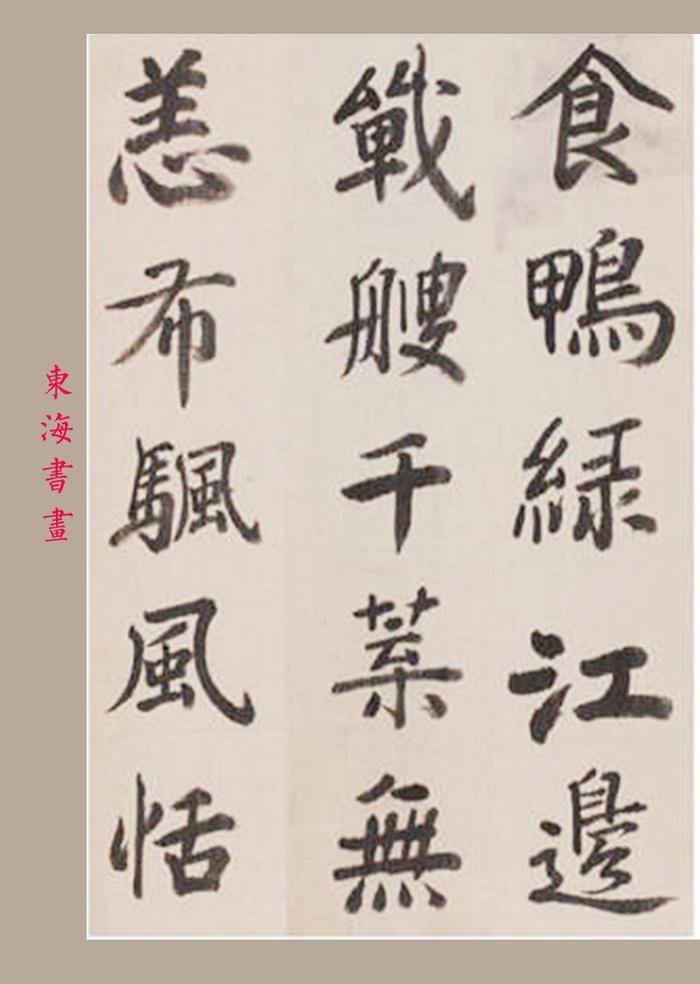 食鴨緑江邊
戰艘千葉無
恙布颿風恬
東海書畫